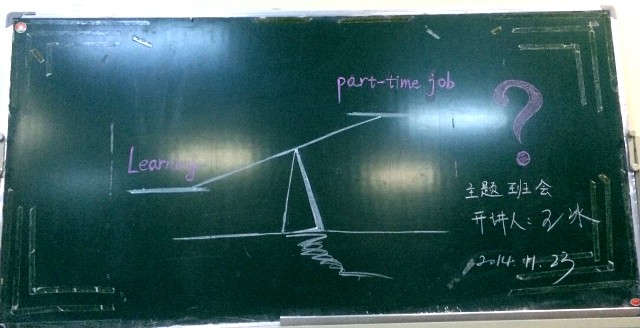 part-time job
?
Learning
主题班会
开讲人:
2014.11.23